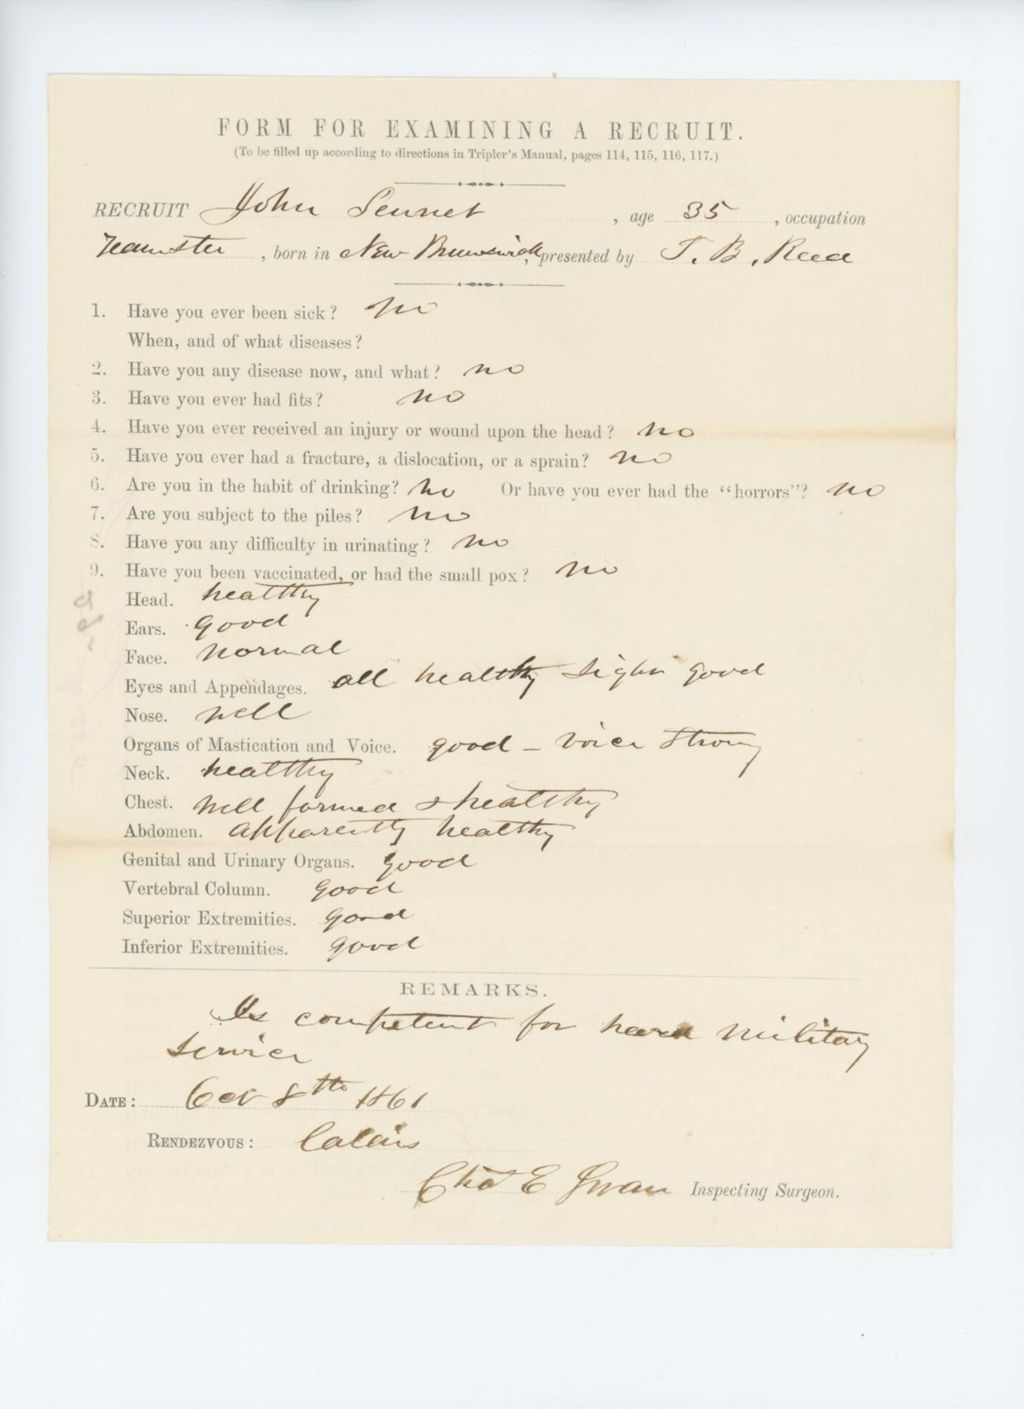 FORM FOR EXAMINING A RECRUIT.
(To be filled up according to directions in Tripler's Manual, pages 114, 115, 116, 117.)
RECRUIT John Sennet , age 35 , occupation
Teamster , born in New Brunswick, presented by T. B. Reed
1. Have you ever been sick? No
When, and of what diseases?
2. Have you any disease now, and what? no
3. Have you ever had fits? no
4. Have you ever received an injury or wound upon the head? no
5. Have you ever had a fracture, a dislocation, or a sprain? no
6. Are you in the habit of drinking? no Or have you ever had the "horrors"? no
7. Are you subject to the piles? no
8. Have you any difficulty in urinating? no
9. Have you been vaccinated, or had the small pox? no
Head. healthy
Ears. good
Face. normal
Eyes and Appendages. all healthy sight good
Nose. well
Organs of Mastication and Voice. good - voice strong
Neck. healthy
Chest. well formed & healthy
Abdomen. apparently healthy
Genital and Urinary Organs. good
Vertebral Column. good
Superior Extremities. good
Inferior Extremities. good
REMARKS.
Is competent for hard military
service
DATE: Oct 8th 1861
RENDEZVOUS: Calais
Chas E Swan Inspecting Surgeon.